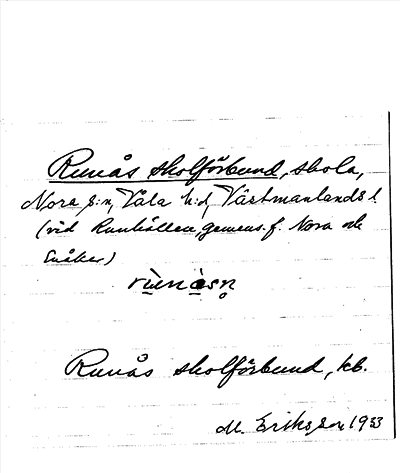 Runås skolförbund, skola,
Nora s:n, Våla h:d, Västmanlands l.
(vid Runhällen, gemens. f. Nora och
Enåker)
Runås skolförbund, kb.
M. Eriksson 1933